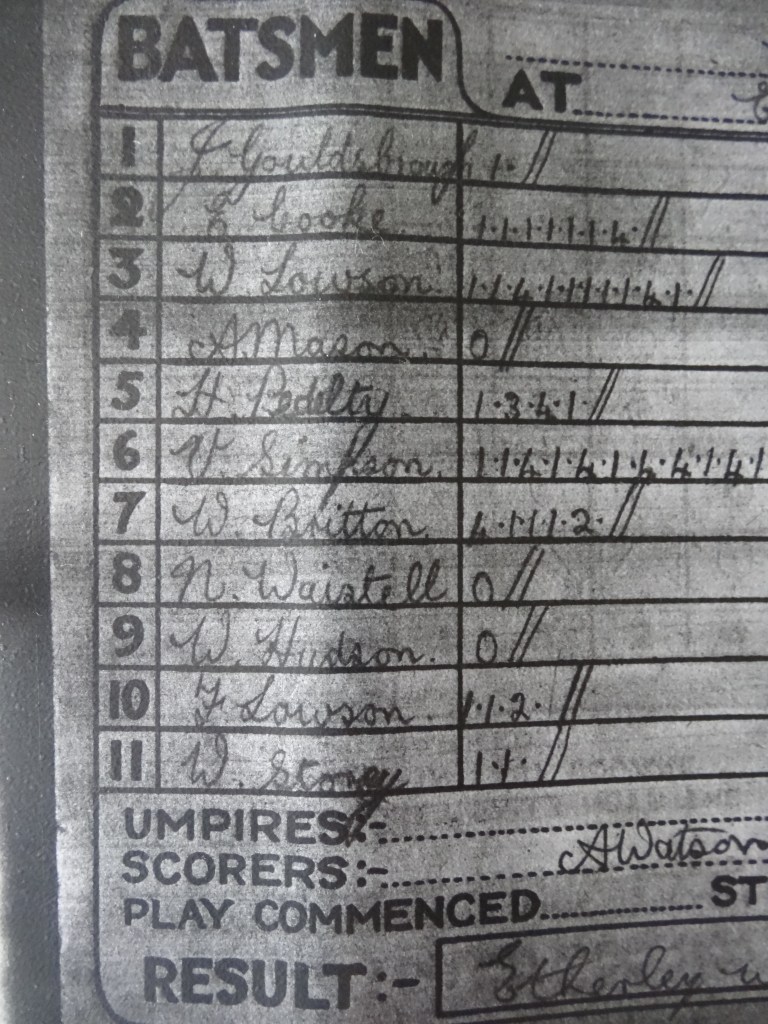 BATSMEN
AT
1 J Gouldsbrough 1·//
2 E Cooke 1·1·1·1·1·1·4·//
3 W. Lowson 1·1·4·1·1·1·1·1·4·1·//
4 A Mason 0//
5 H. Pedelty 1·3·4·1·//
6 V. Simpson. 1·1·4·1·4·1·4·4·1·4·1
7 W. Britton 4·1·1·1·2·//
8 N. Waistell 0//
9 W. Hudson. 0//
10 F Lowson. 1·1·2·//
11 W. Storey 1·1·//
UMPIRES:-
SCORERS:- A Watson
PLAY COMMENCED ST
RESULT:- Etherley w